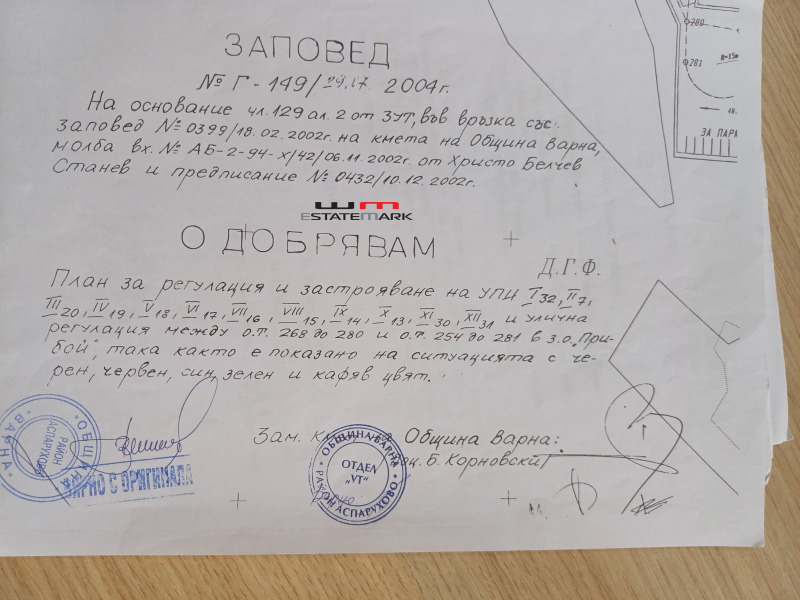 ЗАПОВЕД
№ Г - 149 / 2004 г.
На основание чл. 129 ал. 2 от ЗУТ, във връзка със
заповед № 0399/18.02.2002г. на кмета на Община Варна,
молба вх. № АБ-2-94-Х/42/06.11.2002г. от Христо Белчев
Станев и предписание № 0432/10.12.2002г.
ESTATEMARK
ОДОБРЯВАМ
Д.Г.Ф.
План за регулация и застрояване на УПИ I32, II7,
III20, IV19, V18, VI17, VII16, VIII15, IX14, X13, XI30, XII31 и улична
регулация между о.т. 268 до 280 и о.т. 254 до 281 в з.о. "При-
бой", така както е показано на ситуацията с че-
рен, червен, син, зелен и кафяв цвят.
Зам. Община Варна:
Б. Корновски/
ОБЩИНА ВАРНА
РАЙОН АСПАРУХОВО
ОТДЕЛ
"УТ"
ОБЩИНА
ВАРНА
РАЙОН
АСПАРУХОВО
ВЯРНО С ОРИГИНАЛА
280
281
ЗА ПАРК